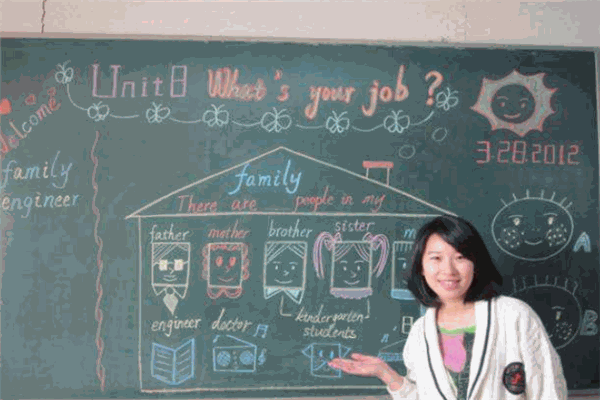 Unit8 What's your job ?
Welcome
family
engineer
3.28.2012
family
There are people in my
father mother brother sister m
engineer doctor kindergarten
students
A
B